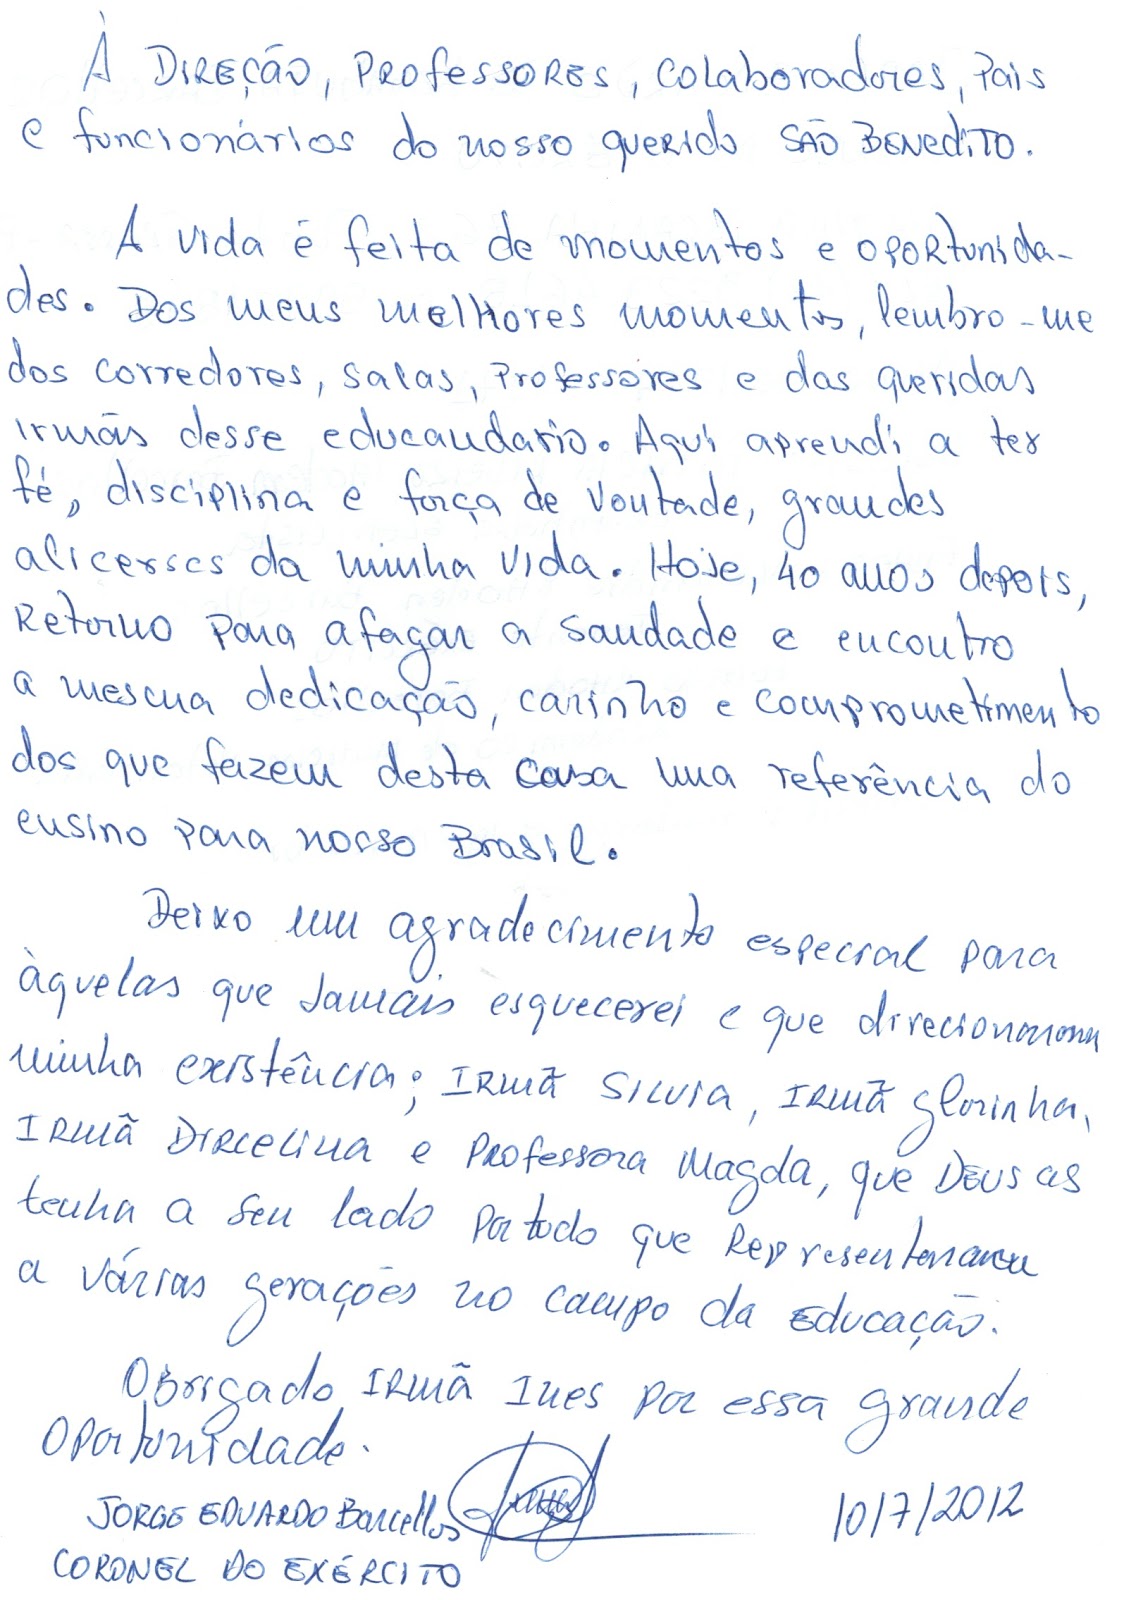 À Direção, Professores, Colaboradores, Pais
e funcionários do nosso querido SÃO BENEDITO.
A vida é feita de momentos e oportunida-
des. Dos meus melhores momentos, lembro-me
dos corredores, salas, professores e das queridas
irmãs desse educandario. Aqui aprendi a ter
fé, disciplina e força de vontade, grandes
alicerses da minha vida. Hoje, 40 anos depois,
Retorno para afagar a saudade e encontro
a mesma dedicação, carinho e comprometimento
dos que fazem desta casa uma referência do
ensino para nosso Brasil.
Deixo um agradecimento especial para
àquelas que jamais esquecerei e que direcionaram
minha existência; Irmã Silvia, Irmã Glorinha,
Irmã Dircelina e Professora Magda, que Deus as
tenha a seu lado por todo que representaram
a várias gerações no campo da Educação.
Obrigado Irmã Ines por essa grande
oportunidade.
JORGE EDUARDO Barcellos
10/7/2012
CORONEL DO EXÉRCITO